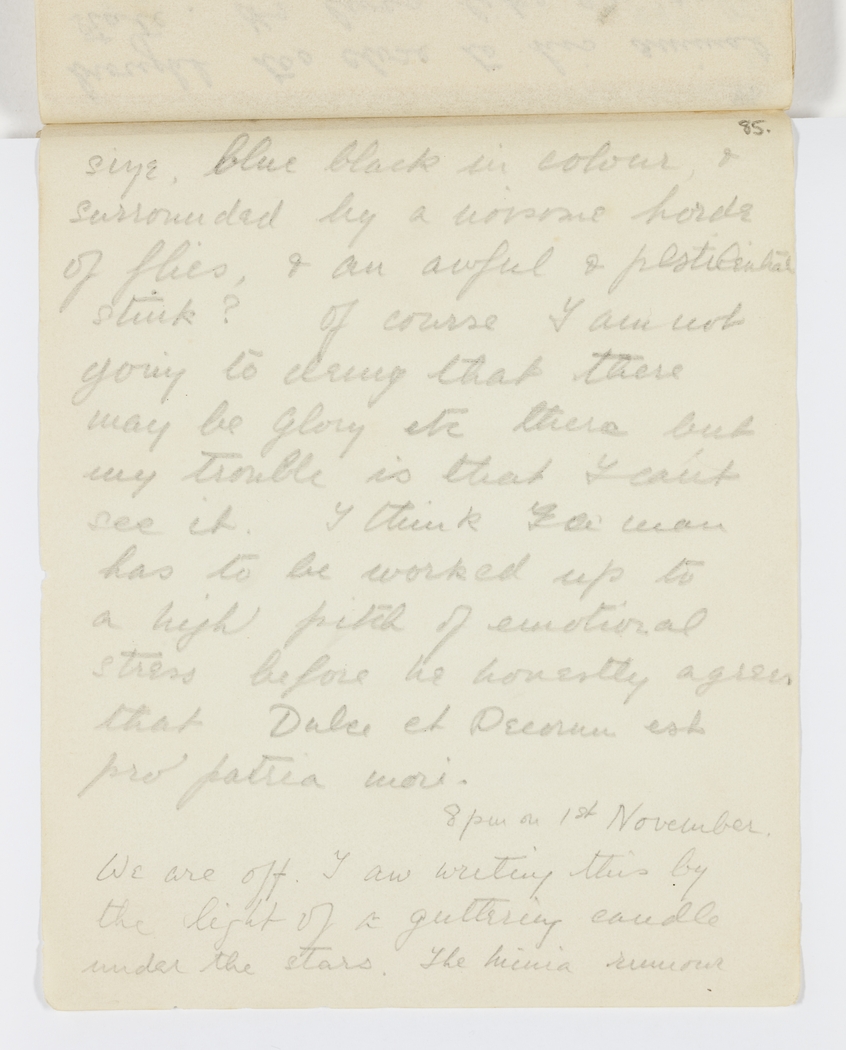 85.
size, blue black in colour, &
surrounded by a noisome horde
of flies, & an awful & pestilential
stink? Of course I am not
going to deny that there
may be Glory etc there but
my trouble is that I can't
see it. I think a man
has to be worked up to
a high pitch of emotional
stress before he honestly agrees
that Dulce et Decorum est
pro patria mori.
8 pm on 1st November.
We are off. I am writing this by
the light of a guttering candle
under the stars. The Minia rumour